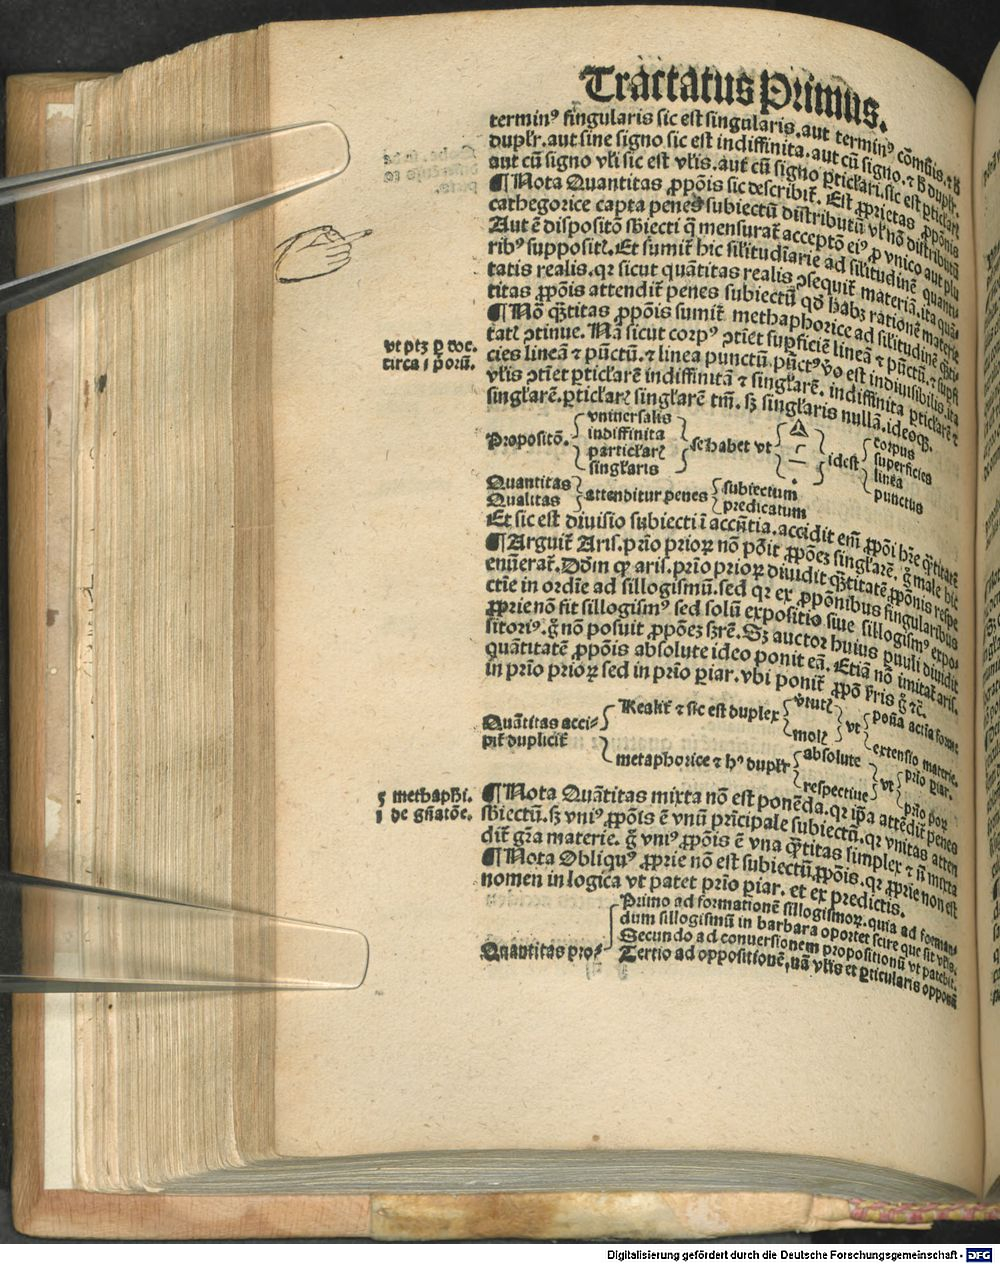 Tractatus Primus.
terminꝰ singularis sic est singularis. aut terminꝰ cõmũis. ⁊ ħ
duplr̃. aut sine signo sic est indiffinita. aut cũ signo. ⁊ ħ duplr̃.
aut cũ signo vl̃i sic est vl̃is. aut cũ signo ꝑticl̃ari. sic est ꝑticl̃ari
¶ Nota Quantitas ꝓpõis sic describit̃. Est ꝓprietas ꝓpõnis
cathegorice capta penes subiectũ distributũ vl̃ nõ distributũ
Aut ẽ dispositõ sb̃iecti q̃ mensurat̃ acceptõ eiꝰ ꝑ vnico aut plu
ribꝰ suppositꝭ. Et sumit̃ hic sil̃itudĩarie ad sil̃itudinẽ quanti
tatis realis. qꝛ sicut quãtitas realis ↄsequit̃ materiã. ita quã
titas ꝓpõis attendit̃ penes subiectũ qđ habꝫ rationẽ materie
¶ Nõ q̃titas ꝓpõis sumit̃ methaphorice ad sil̃itudinẽ q̃ti
tatꝭ ↄtinue. Nã sicut corpꝰ ↄtĩet suꝑficiẽ lineã ⁊ pũctũ. ⁊ suꝑfi
cies lineã ⁊ pũctũ. ⁊ linea punctũ pũctꝰ ṽo est indiuisibilis. ita
vl̃is ↄtĩet ꝑticl̃arẽ indiffinitã ⁊ singl̃arẽ. indiffinita ꝑticl̃arẽ ⁊
singl̃arẽ. ꝑticl̃arꝭ singl̃arẽ tm̃. sꝫ singl̃aris nullã. ideoqꝫ.
vt ptꝫ ꝑ boe.
circa i ꝑorũ.
Propositõ. vniuersalis indiffinita particl̃arꝭ singl̃aris se habet vt idest corpus superficies linea punctus
Quantitas Qualitas attenditur penes subiectum predicatum
Et sic est diuisio subiecti ĩ accñtia. accidit em̃ ꝓpõi hr̃e q̃titatẽ
¶ Arguit̃ Aris. prĩo prioꝝ nõ põit ꝓpõeʒ singl̃arẽ. g̃ male hic
enũerat̃. Dõm qꝫ aris. prĩo prioꝝ diuidit q̃titatẽ ꝓpõnis respe
ctiẽ in ordĩe ad sillogismũ. sed qꝛ ex ꝓpõnibus singularibus
ꝓprie nõ fit sillogismꝰ sed solũ expositio siue sillogismꝰ expo-
sitoriꝰ. g̃ nõ posuit ꝓpõeʒ sgr̃ẽ. Sꝫ auctor huius puuli diuidit
quãtitatẽ ꝓpõis absolute ideo ponit eã. Etiã nõ imitat̃ aris.
in prĩo prioꝝ sed in prĩo ꝑiar. vbi ponit̃ ꝓpõ sr̃is g̃ ⁊c̃.
Quãtitas acci-
pit̃ duplicit̃
Realit̃ ⁊ sic est duplex virtutꝭ molꝭ vt poña actĩa forme extensio materie.
metaphorice ⁊ hꝰ duplr̃ absolute respectiue vt prĩo ꝑiar. prĩo ꝑoꝝ
5 methaphi.
i de gñatõe.
¶ Nota Quãtitas mixta nõ est ponẽda. qꝛ ip̃a attẽdit̃ penes
sb̃iectũ. sꝫ vniꝰ ꝓpõis ẽ vnũ prĩcipale subiectũ. qꝛ vnitas atten
dit̃ gr̃a materie. g̃ vniꝰ ꝓpõis ẽ vna q̃titas simplex ⁊ ñ mixta
¶ Nota Obliquꝰ ꝓprie nõ est subiectũ ꝓpõis. qꝛ ꝓprie non est
nomen in logica vt patet prĩo ꝑiar. et ex predictis.
Quantitas pro-
Primo ad formationẽ sillogismoꝝ. quia ad forman-
dum sillogismũ in barbara oportet scire que sit vl̃is.
Secundo ad conuersionem propositionũ vt patebit.
Tertio ad oppositionẽ, nã vl̃is et ꝑticularis opponũ
Digitalisierung gefördert durch die Deutsche Forschungsgemeinschaft - DFG